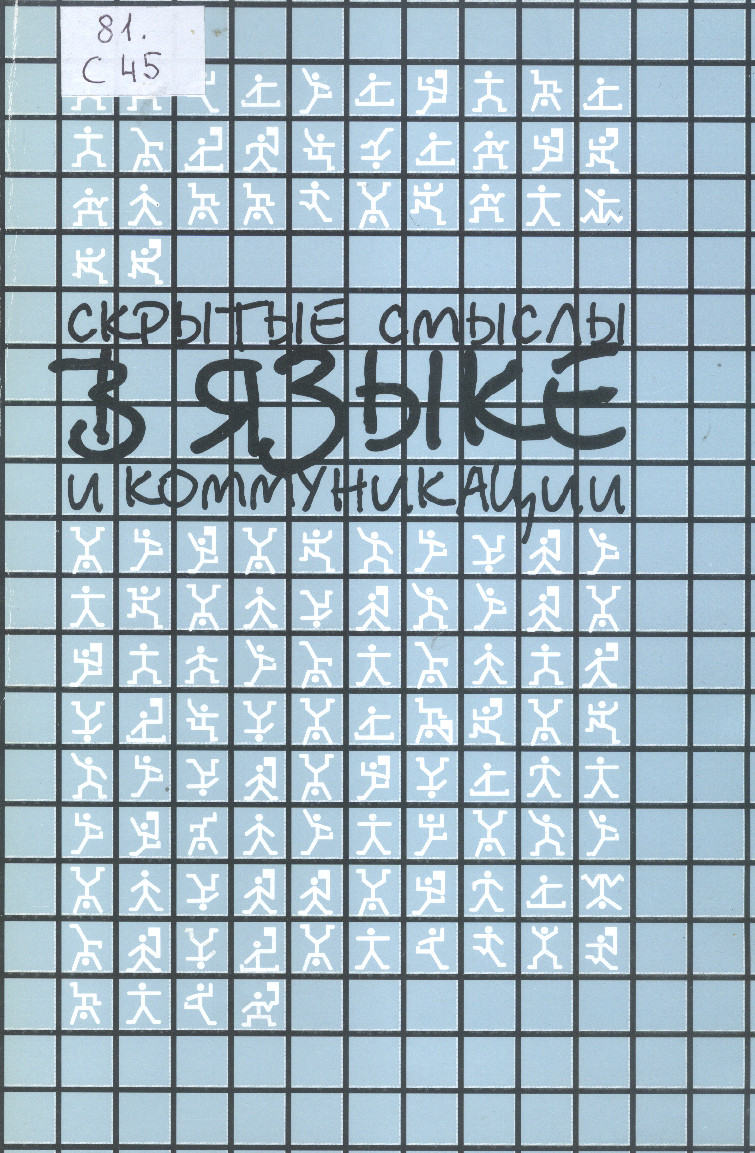 81.
С 45
СКРЫТЫЕ СМЫСЛЫ
В ЯЗЫКЕ
И КОММУНИКАЦИИ